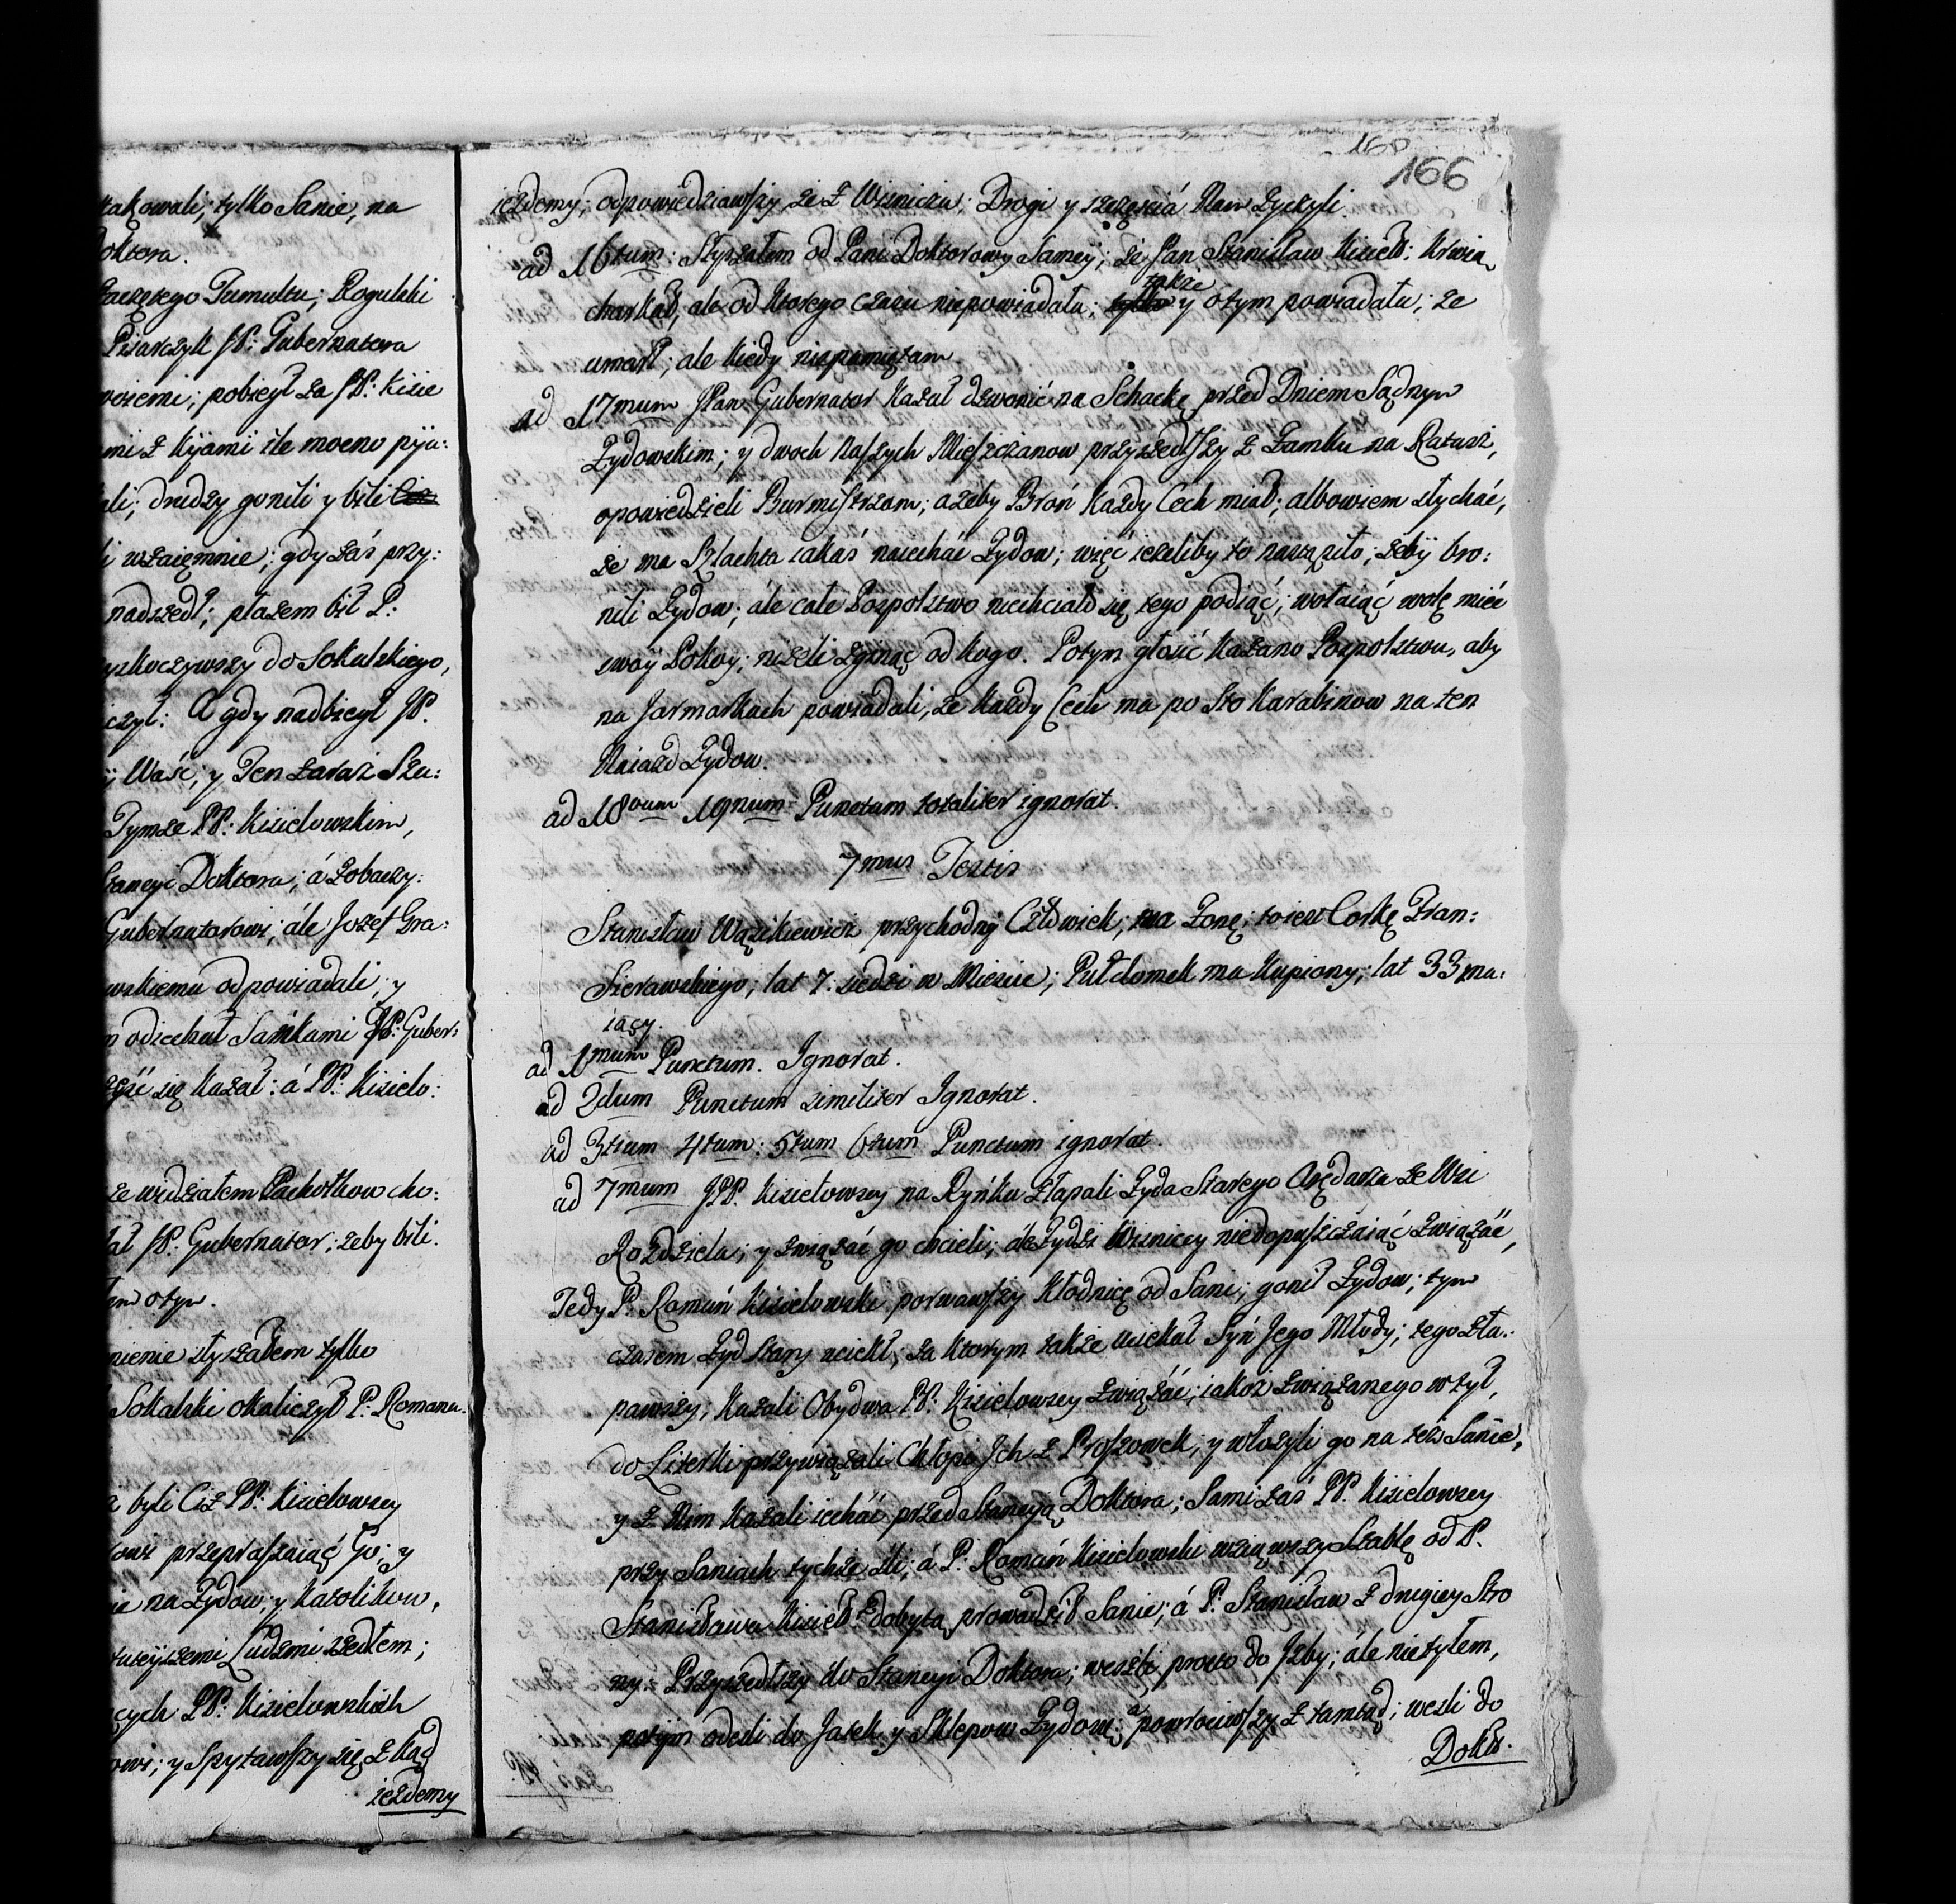 takowali; tylko Sanie, na
Doktora.
Zaczętego Tumultu; Rogulski
Pisarczyk JP: Gubernatora
pobiegł za JP: Kisie
mi z Kyami ile mocno pija:
ali; drudzy gonili y bili
i wzaięmnie; gdy zaś przy:
nadszedł; płazem bił P:
yskoczywszy do Sokalskiego,
iczył: A gdy nadbiegł JP.
y Waść; y Ten zaraz Sza:
Tymże PP: Kisielowskim,
Stancyi Doktora; á zobaczy:
Gubernatorowi; ále Jozef Gra:
wskiemu odpowiadali; y
odiechał Sankami JP: Guber:
się kazał: á PP: Kisielo:
że widziałem Pachołkow cho:
ał JP: Gubernator; zeby bili.
em otym.
nienie słyszałem tylko
Sokalski okaliczył P: Romana.
a byli Ciż PP: Kisielowscy
owi przeprasza­iąć Go; y
ie na Zydow; y Katolikow,
tuteyszemi Ludzmi szedłem;
ących PP: Kisielowskich
owi; y Spytawszy się z kąd
iezdemy
160
166
iezdemy; odpowiedziawszy że z Wisnicza; Drogi y szczęścia Nam Zyczyli.
ad 16tum: Słyszałem od Pani Doktorowy Samey; że Pan Stanisław Kisiel: Krwią
charkał, ale od ktorego czasu niepowiadała; także y otym powiadała; że
umarł; ale kiedy niepamiętam.
ad 17mum JPan Gubernator kazał dzwonić na Schackę przed Dniem Sądnym
Zydowskim; y dwoch Naszych Mieszczanow przyszedłszy z Zamku na Ratusz,
opowiedzieli Burmistrzom; azeby Broń każdy Cech miał; albowiem słychać,
że ma Szlachta iakaś naiechać Zydow; więć ieżeliby to nastąpiło, żeby bro:
nili Zydow; ále całe Pospolstwo niechciało się tego podiąć; wołaiąć wolę mieć
swoy Pokoy; niżeli zginąć od kogo. Potym głosić kazano Pospolstwu, aby
na Jarmarkach powiadali, że każdy Cech ma po Sto Karabinow na ten
Naiazd Zydow.
ad 18vum 19num Punctum totaliter ignorat.
7mus Testis
Stanisław Wąsikiewicz przychodny Człowiek; ma Zonę; toiest Corkę Fran:
Sierawskiego; lat 7. siedzi w Mieście; Puł domek ma kupiony; lat 33 ma:
iąćy.
ad 1mum Punctum. Ignorat.
ad 2dum Punctum similiter Ignorat.
ad 3tium 4tum: 5tum 6tum Punctum ignorat.
ad 7mum JPP. Kisielowscy na Rynku złapali Zyda Starego Arędarza ze Wsi
Rozdziela; y związać go chcieli; ále Zydzi Wisniccy niedopuszczaiąć związać,
Tedy P: Roman Kisielowski porwawszy Kłodnicę od Sani; gonił Zydow; tym
czasem Zyd Stary uciekł; za ktorym także uciekał Syn Jego Młody; tego zła:
pawszy; kazali Obydwa PP: Kisielowscy związać; iakoż związanego w tył,
do Literki przywiązali Chłopi Jch z Proszowek; y włożyli go na też Sanie,
y z Nim kazali iechać przed Stancyą Doktora; Sami zaś PP. Kisielowscy
przy Saniach tychże szli; á P: Roman Kisielowski wziąwszy Szablę od P.
Stanisława Kisiel: dobytą, prowadził Sanie; á P: Stanisław z drugiey Stro
ny. Przyszedłszy do Stancyi Doktora; weszli prosto do Jzby; ále nietyłem,
potym odeszli do Jatek y Sklepow Zydow; á powrociwszy z tamtąd; weszli do
Dokto.